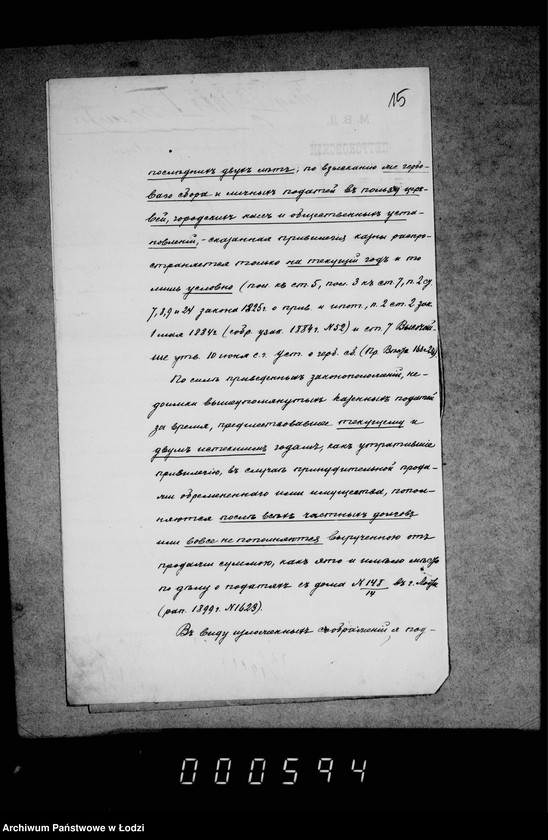 15
последнихъ двухъ лѣтъ; по взысканію же гербо-
ваго сбора и личныхъ податей въ пользу церк-
вей, городскихъ кассъ и общественныхъ уста-
новленій, - сказанная привилегія казны распро-
страняется только на текущій годъ и то
лишь условно (пол. къ ст. 5, пол. 3 къ ст. 7, п. 2 ст.
7, 8, 9 и 24 закона 1825 г. о прив. и ипот., п. 2 ст. 2 зак.
1 мая 1884 г. (собр. узак. 1884 г. N 52) и ст. 7 Высочай-
ше утв. 10 июня с. г. Уст. о герб. сб.
По силѣ приведенныхъ законоположеній, не-
доимки вышеупомянутыхъ казенныхъ податей
за время, предшествовавшее текущему и
двумъ истекшимъ годамъ, какъ утратившіе
привилегію, въ случаѣ принудительной прода-
жи обремененнаго ими имущества, попол-
няются послѣ всѣхъ частныхъ долговъ
или вовсе не пополняются вырученною отъ
продажи суммою, какъ это и имѣло мѣсто
по дѣлу о податяхъ съ дома N 148/14 въ г. Лодзи
(рап. 1899 г. N 1629).
Въ виду изложенныхъ соображеній, я под-
000594
Archiwum Państwowe w Łodzi